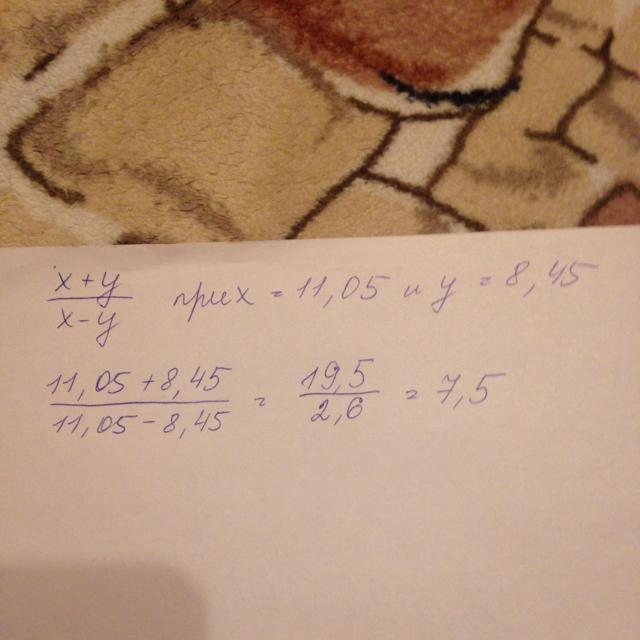 x+y
x-y при x = 11,05 и y = 8,45
11,05 + 8,45
11,05 - 8,45 = 19,5
2,6 = 7,5